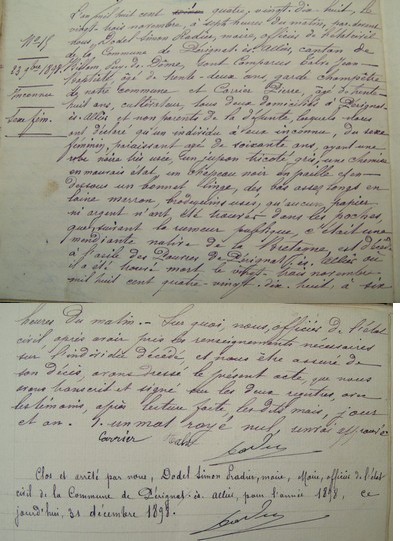 L'an mil huit cent quatre-vingt-dix-huit, le
vingt-trois novembre, à sept heures du matin, par devant
Nous, Dodel-Simon Pradier, maire, officier de l'état civil
de la Commune de Pérignat-ès-Allier, canton de
Puy-de-Dôme, sont comparus Jean
Baptiste, âgé de trente-deux ans, garde champêtre
de notre commune et Pierre, âgé de trente-
huit ans, cultivateur, tous deux domiciliés à Pérignat-
ès-Allier et non parents de la défunte, lesquels nous
ont déclaré qu'un individu à eux inconnu, du sexe
féminin, paraissant âgé de soixante ans, ayant une
robe noire très usée, un jupon tricoté gris, une chemise
en mauvais état, un chapeau noir en paille et au-
dessous un bonnet linge, des bas assez longs en
laine marron, brodequins usés, qu'aucun papier
ni argent n'ont été trouvés dans les poches,
que, suivant la rumeur publique, c'était une
mendiante native de la Bretagne, est
à l'asile des Pauvres de Pérignat-ès-Allier où
il a été trouvé mort le vingt-trois novembre
mil huit cent quatre-vingt-dix-huit à six
N° 15
23 9bre 1898
Inconnu
sexe fém.
heures du matin. - Sur quoi, nous, officier de l'état
civil après avoir pris les renseignements nécessaires
sur l'individu décédé et nous être assuré de
son décès, avons dressé le présent acte, que nous
avons transcrit et signé sur les deux registres, avec
les témoins, après lecture faite, les dits mois, jour
et an. 1. un mot rayé nul,
Clos et arrêté par nous, Dodel Simon Pradier, maire, officier de l'état
civil de la Commune de Pérignat-ès-Allier, pour l'année 1898, ce
jourd'hui, 31 décembre 1898.